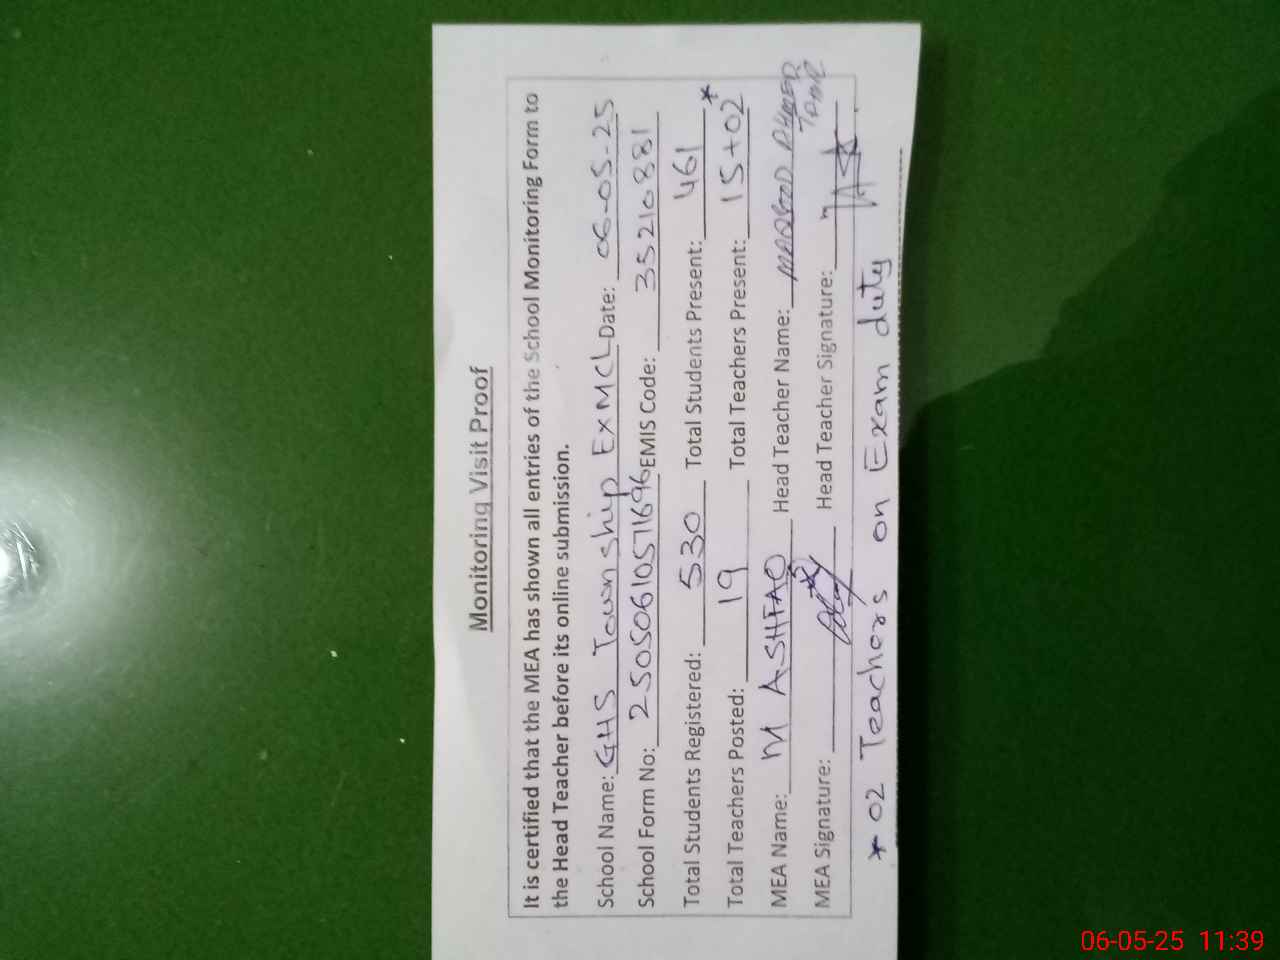 Monitoring Visit Proof
It is certified that the MEA has shown all entries of the School Monitoring Form to
the Head Teacher before its online submission.
School Name: GHS Township EX MCL Date: 06-05-25
School Form No: 25050610571696 EMIS Code: 35210881
Total Students Registered: 530 Total Students Present: 461
Total Teachers Posted: 19 Total Teachers Present: 15+02*
MEA Name: M ASHFAQ Head Teacher Name: MAQSOOD AHMED
MEA Signature: Head Teacher Signature:
* 02 Teachers on Exam duty
06-05-25 11:39